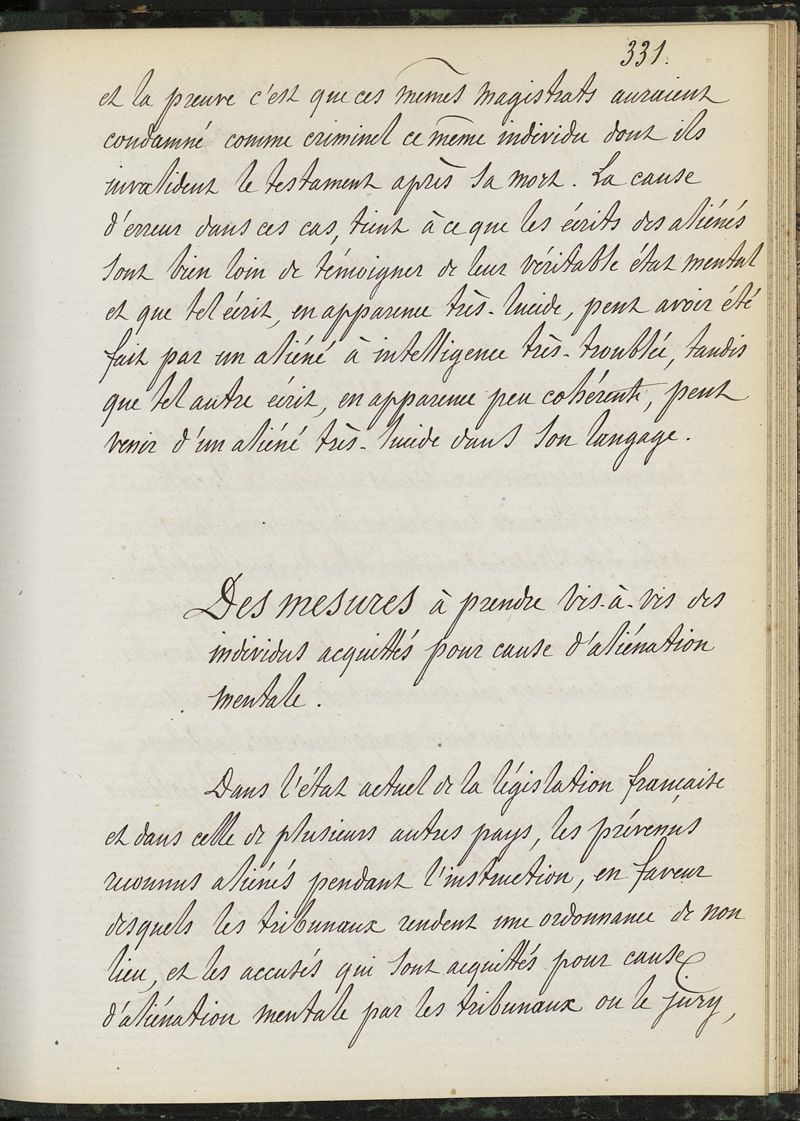 331.
et la preuve c'est que ces mêmes magistrats auraient
condamné comme criminel ce même individu dont ils
invalident le testament après sa mort. La cause
d'erreur dans ces cas, tient à ce que les écrits des aliénés
sont bien loin de témoigner de leur véritable état mental
et que tel écrit, en apparence très-lucide, peut avoir été
fait par un aliéné à intelligence très-troublée, tandis
que tel autre écrit, en apparence peu cohérente, peut
venir d'un aliéné très-lucide dans son langage.
Des mesures à prendre vis-à-vis des
individus acquittés pour cause d'aliénation
mentale.
Dans l'état actuel de la législation française
et dans celle de plusieurs autres pays, les prévenus
reconnus aliénés pendant l'instruction, en faveur
desquels les tribunaux rendent une ordonnance de non
lieu, et les accusés qui sont acquittés pour cause
d'aliénation mentale par les tribunaux ou le jury,